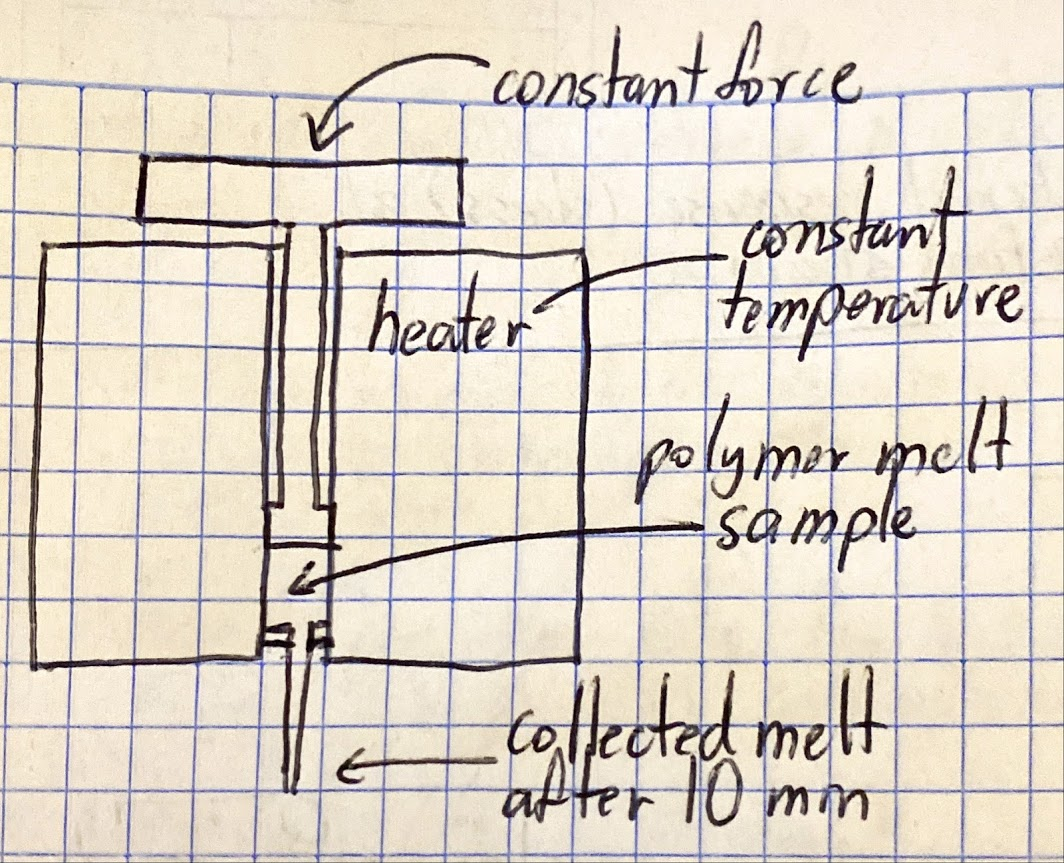 constant force
constant
temperature
heater
polymer melt
sample
collected melt
after 10 min